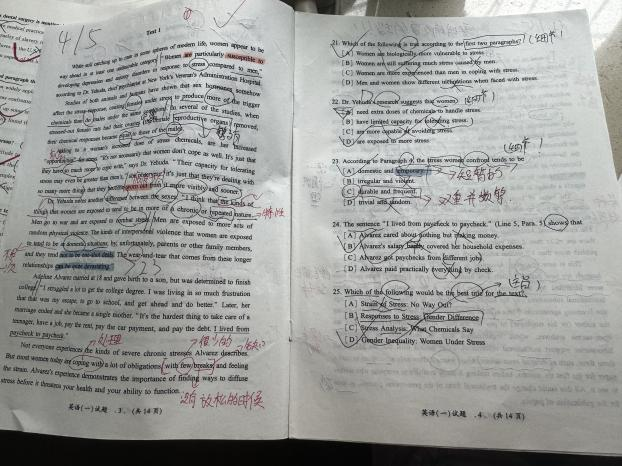 4/5
Text 1
While still catching up to men in some spheres of modern life, women appear to be
way ahead in at least one undesirable category. "Women are particularly susceptible to
developing depression and anxiety disorders in response to stress compared to men,"
according to Dr. Yehuda, chief psychiatrist at New York's Veteran's Administration Hospital.
Studies of both animals and humans have shown that sex hormones somehow
affect the stress response, causing females under stress to produce more of the trigger
chemicals than do males under the same conditions. In several of the studies, when
stressed-out female rats had their ovaries (the female reproductive organs) removed,
their chemical responses became equal to those of the males.
Adding to a woman's increased dose of stress chemicals, are her increased
"opportunities" for stress. "It's not necessarily that women don't cope as well. It's just that
they have so much more to cope with," says Dr. Yehuda. "Their capacity for tolerating
stress may even be greater than men's," she observes, "it's just that they're dealing with
so many more things that they become worn out from it more visibly and sooner."
Dr. Yehuda notes another difference between the sexes. "I think that the kinds of
things that women are exposed to tend to be in more of a chronic or repeated nature.
Men go to war and are exposed to combat stress. Men are exposed to more acts of
random physical violence. The kinds of interpersonal violence that women are exposed
to tend to be in domestic situations, by, unfortunately, parents or other family members,
and they tend not to be one-shot deals. The wear-and-tear that comes from these longer
relationships can be quite devastating."
Adeline Alvarez married at 18 and gave birth to a son, but was determined to finish
college. "I struggled a lot to get the college degree. I was living in so much frustration
that that was my escape, to go to school, and get ahead and do better." Later, her
marriage ended and she became a single mother. "It's the hardest thing to take care of a
teenager, have a job, pay the rent, pay the car payment, and pay the debt. I lived from
paycheck to paycheck."
Not everyone experiences the kinds of severe chronic stresses Alvarez describes.
But most women today are coping with a lot of obligations, with few breaks, and feeling
the strain. Alvarez's experience demonstrates the importance of finding ways to diffuse
stress before it threatens your health and your ability to function.
没有放松的时候
英语(一)试题 .3. (共14页)
21. Which of the following is true according to the first two paragraphs? (细节)
[A] Women are biologically more vulnerable to stress.
[B] Women are still suffering much stress caused by men.
[C] Women are more experienced than men in coping with stress.
[D] Men and women show different inclinations when faced with stress.
22. Dr. Yehuda's research suggests that women (细节)
[A] need extra doses of chemicals to handle stress.
[B] have limited capacity for tolerating stress.
[C] are more capable of avoiding stress.
[D] are exposed to more stress.
23. According to Paragraph 4, the stress women confront tends to be (细节)
[A] domestic and temporary.
短暂的
[B] irregular and violent.
[C] durable and frequent.
[D] trivial and random.
24. The sentence "I lived from paycheck to paycheck." (Line 5, Para. 5) shows that
[A] Alvarez cared about nothing but making money.
[B] Alvarez's salary barely covered her household expenses.
[C] Alvarez got paychecks from different jobs.
[D] Alvarez paid practically everything by check.
25. Which of the following would be the best title for the text?
[A] Strain of Stress: No Way Out?
[B] Responses to Stress: Gender Difference
[C] Stress Analysis: What Chemicals Say
[D] Gender Inequality: Women Under Stress
英语(一)试题 .4. (共14页)